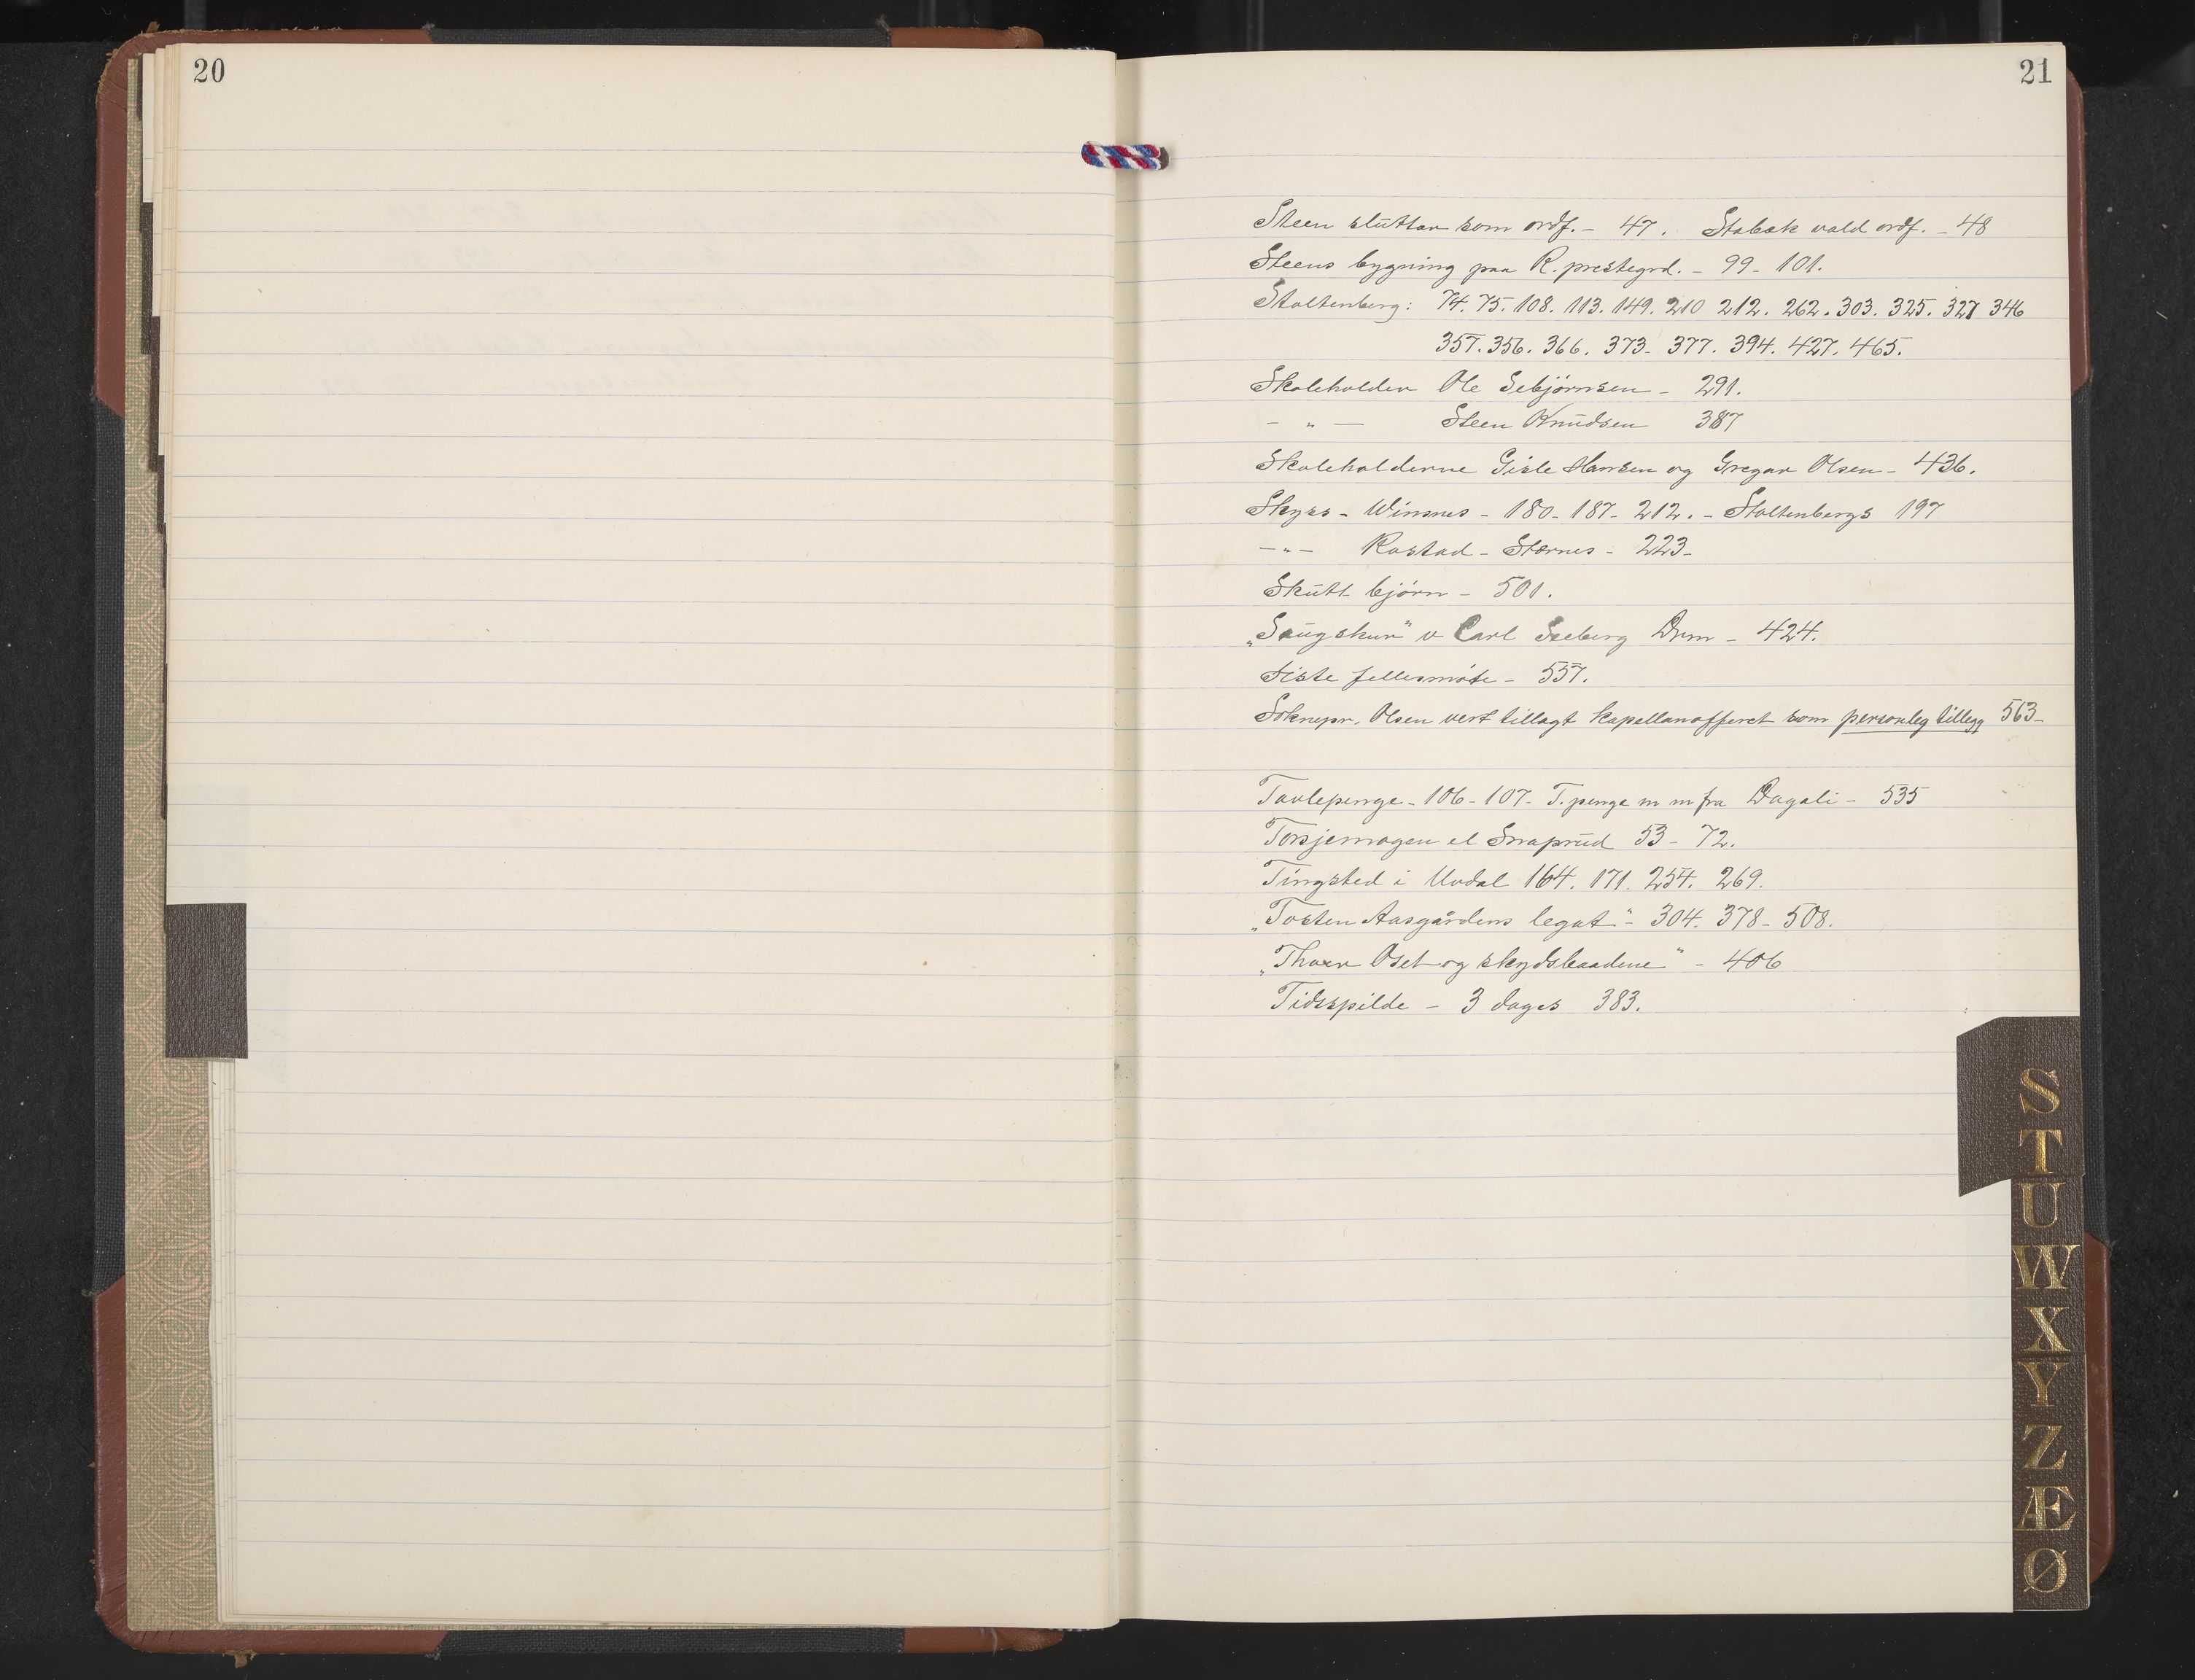 20
21
Steen sluttar som ordf. - 47. Stabæk vald ordf. - 48
Steens bygning paa R. prestegrd. - 99 - 101.
Stoltenberg: 74. 75. 108. 113. 149. 210 212. 262. 303. 325. 327 346
357. 356. 366. 373 - 377. 394. 427. 465.
Skoleholder Ole Sebjörnsen - 291.
- " - Steen Knudsen 387
Skoleholderne Gisle Hansen og Gregar Olsen - 436.
Skyss - Winsnes - 180 - 187 - 212. - Stoltenbergs 197
- " - Rostad - Størnes - 223 -
Skutt björn - 501.
„Saugskur" v Carl Seeberg Drm - 424.
Siste fellesmöte - 557.
Soknepr. Olsen vert tillagt kapellanofferet som personleg tillegg 563 -
Tavlepenge - 106 - 107 - T. penge m m fra Dagali - 535
Torsjemogen el Snaprud 53 - 72.
Tingsted i Uvdal 164. 171. 254. 269.
„Tosten Aasgårdens legat" - 304. 378 - 508.
„Thor Oset og skydsbaadene" - 406
Tidsspilde - 3 dages 383.
S
T
U
W
X
Y
Z
Æ
Ø